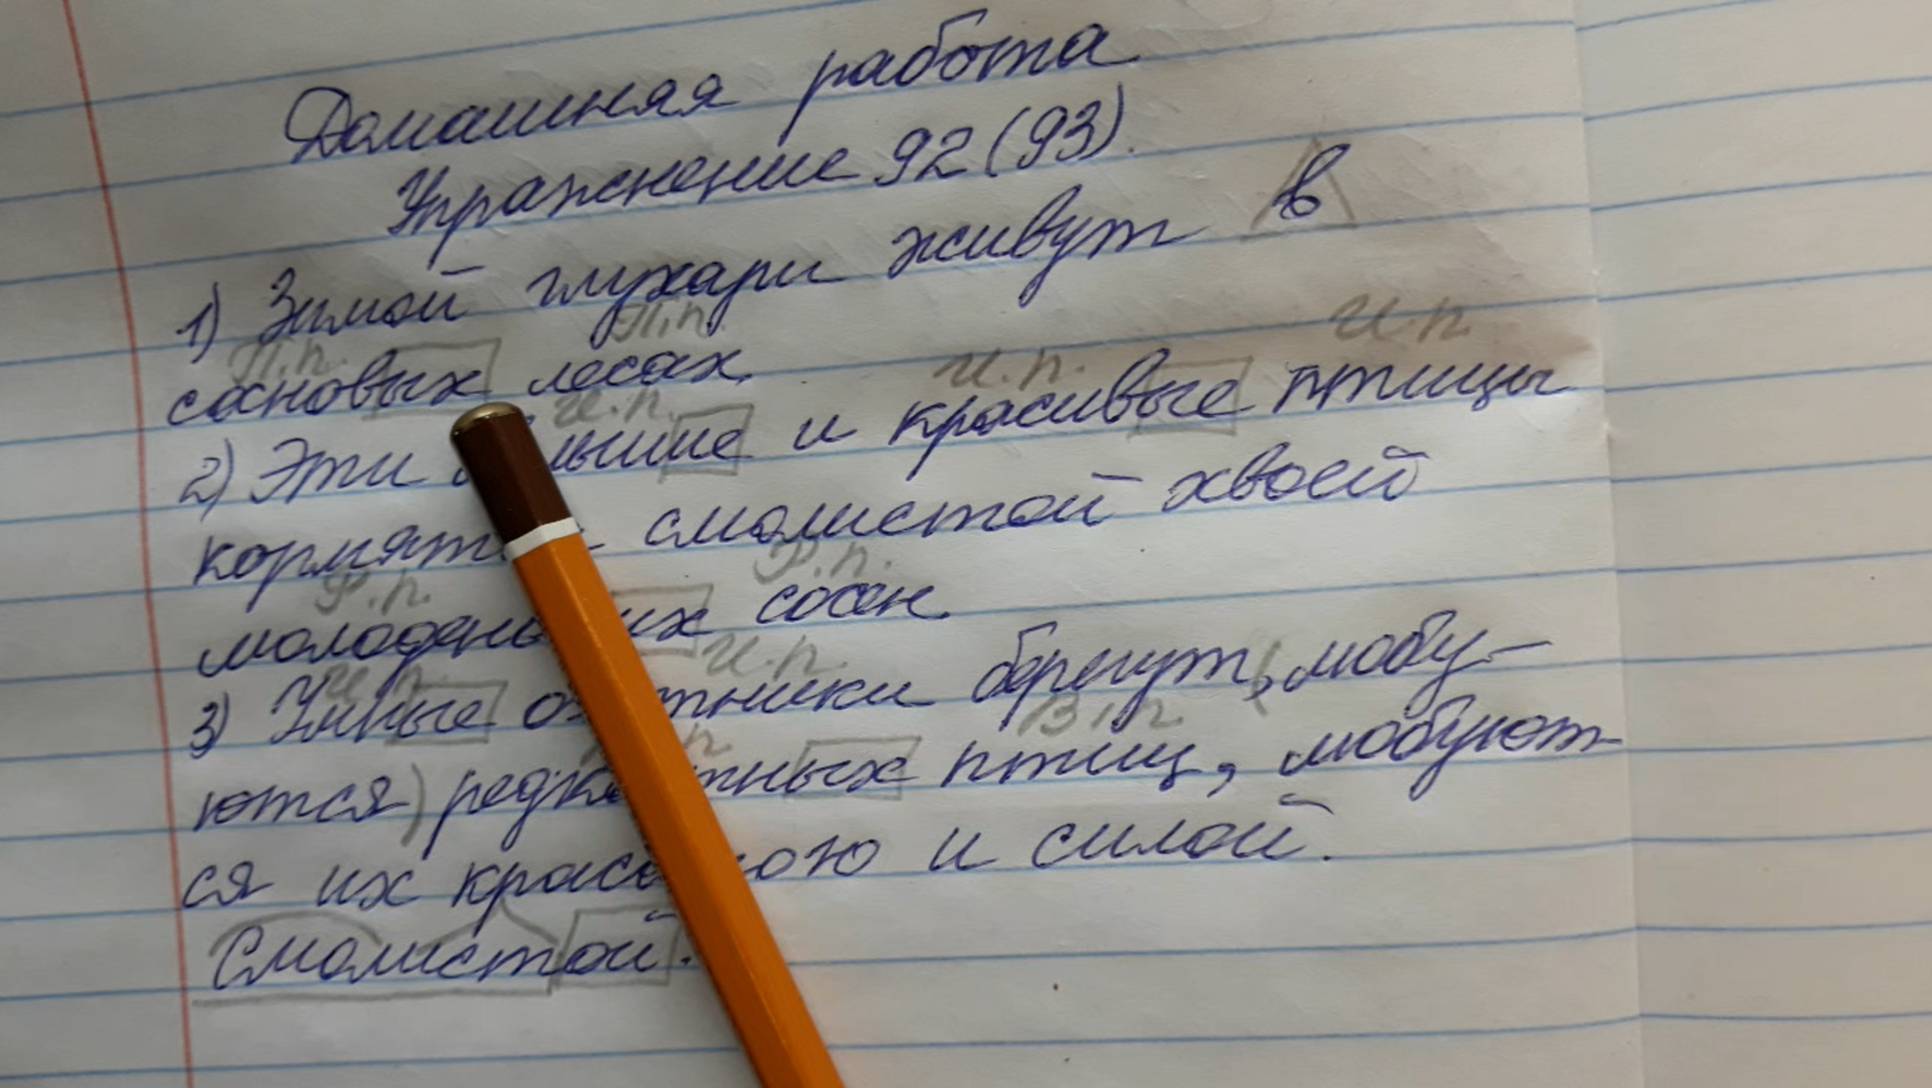 Домашняя работа
Упражнение 92 (93).
1) Зимой глухари живут в
П.п. П.п.
сосновых лесах.
И.п. И.п. И.п.
2) Эти и красивые птицы
смолистой хвоей
Р.п. Р.п.
сосен.
И.п. И.п.
3) Умные берегут, (любу-
В.п.
ются) птиц, любуют-
ся их и силой.
Смолистой.